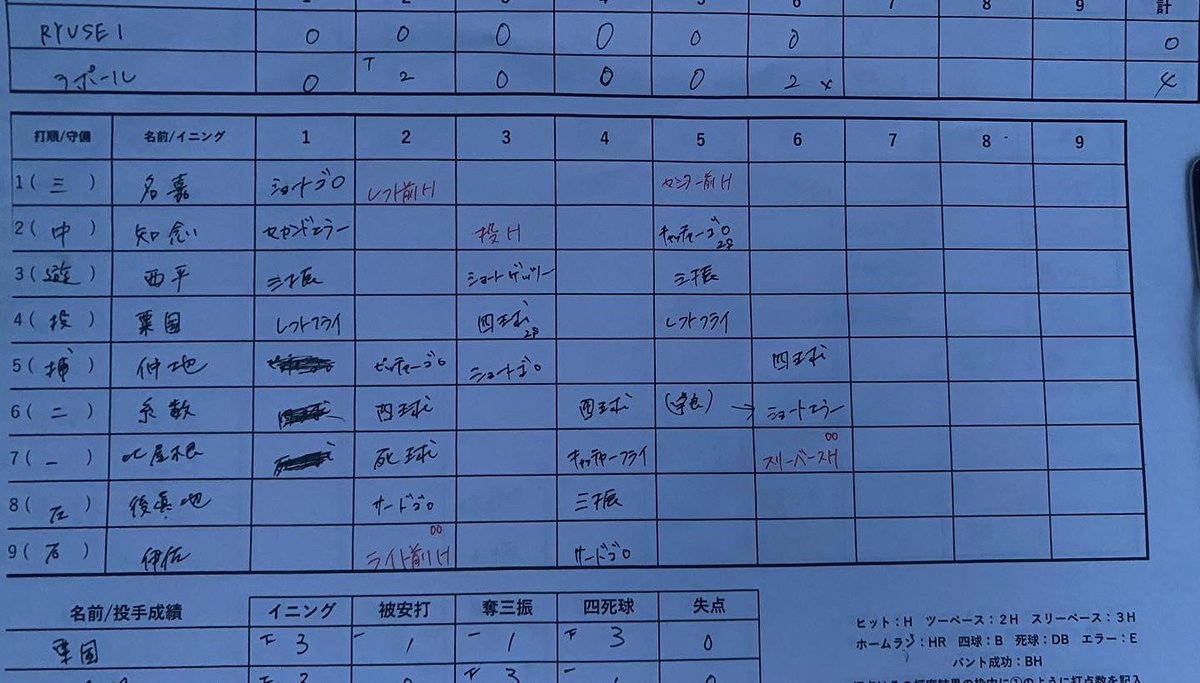 1 2 3 4 5 6 7 8 9 計
RYUSEI 0 0 0 0 0 0 0
ラポール 0 T 2 0 0 0 2 x 4
打順/守備 名前/イニング 1 2 3 4 5 6 7 8 9
1 ( 三 ) 名嘉 ショートゴロ レフト前H センター前H
2 ( 中 ) 知念 セカンドエラー 投H キャッチャーゴロ
3 ( 遊 ) 西平 三振 ショートゲッツー 三振
4 ( 投 ) 粟国 レフトフライ 四球 レフトフライ
5 ( 捕 ) 仲地 ピッチャーゴロ ショートゴロ 四球
6 ( 二 ) 糸数 四球 四球 → ショートエラー
7 ( 一 ) 比屋根 死球 キャッチャーフライ 00 スリーベースH
8 ( 左 ) 後真地 サードゴロ 三振
9 ( 右 ) 伊佐 00 ライト前H サードゴロ
名前/投手成績 イニング 被安打 奪三振 四死球 失点
粟国 T 3 一 1 一 1 T 3 0
T 3 T 3 1 0
ヒット：H ツーベース：2H スリーベース：3H
ホームラン：HR 四球：B 死球：DB エラー：E
バント成功：BH